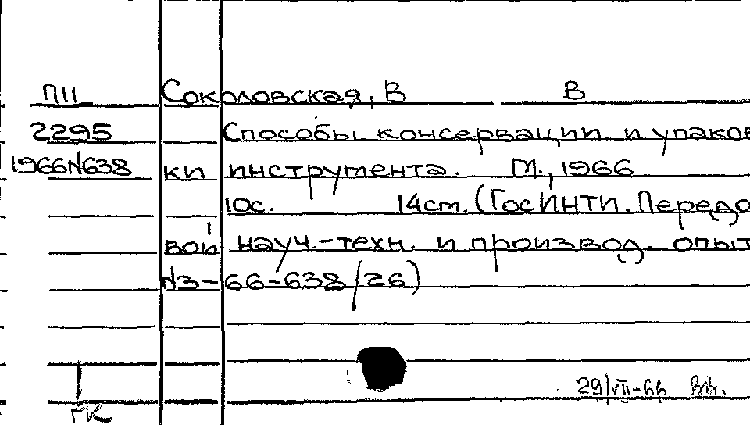 П11 Соколовская, В В
2295 Способы консервации и упаков
1966N638 ки инструмента. М., 1966
10с. 14см. (ГосИНТИ. Передо
вой науч.-техн. и производ. опыт
N3-66-638/26)
29/VII-66
ГК